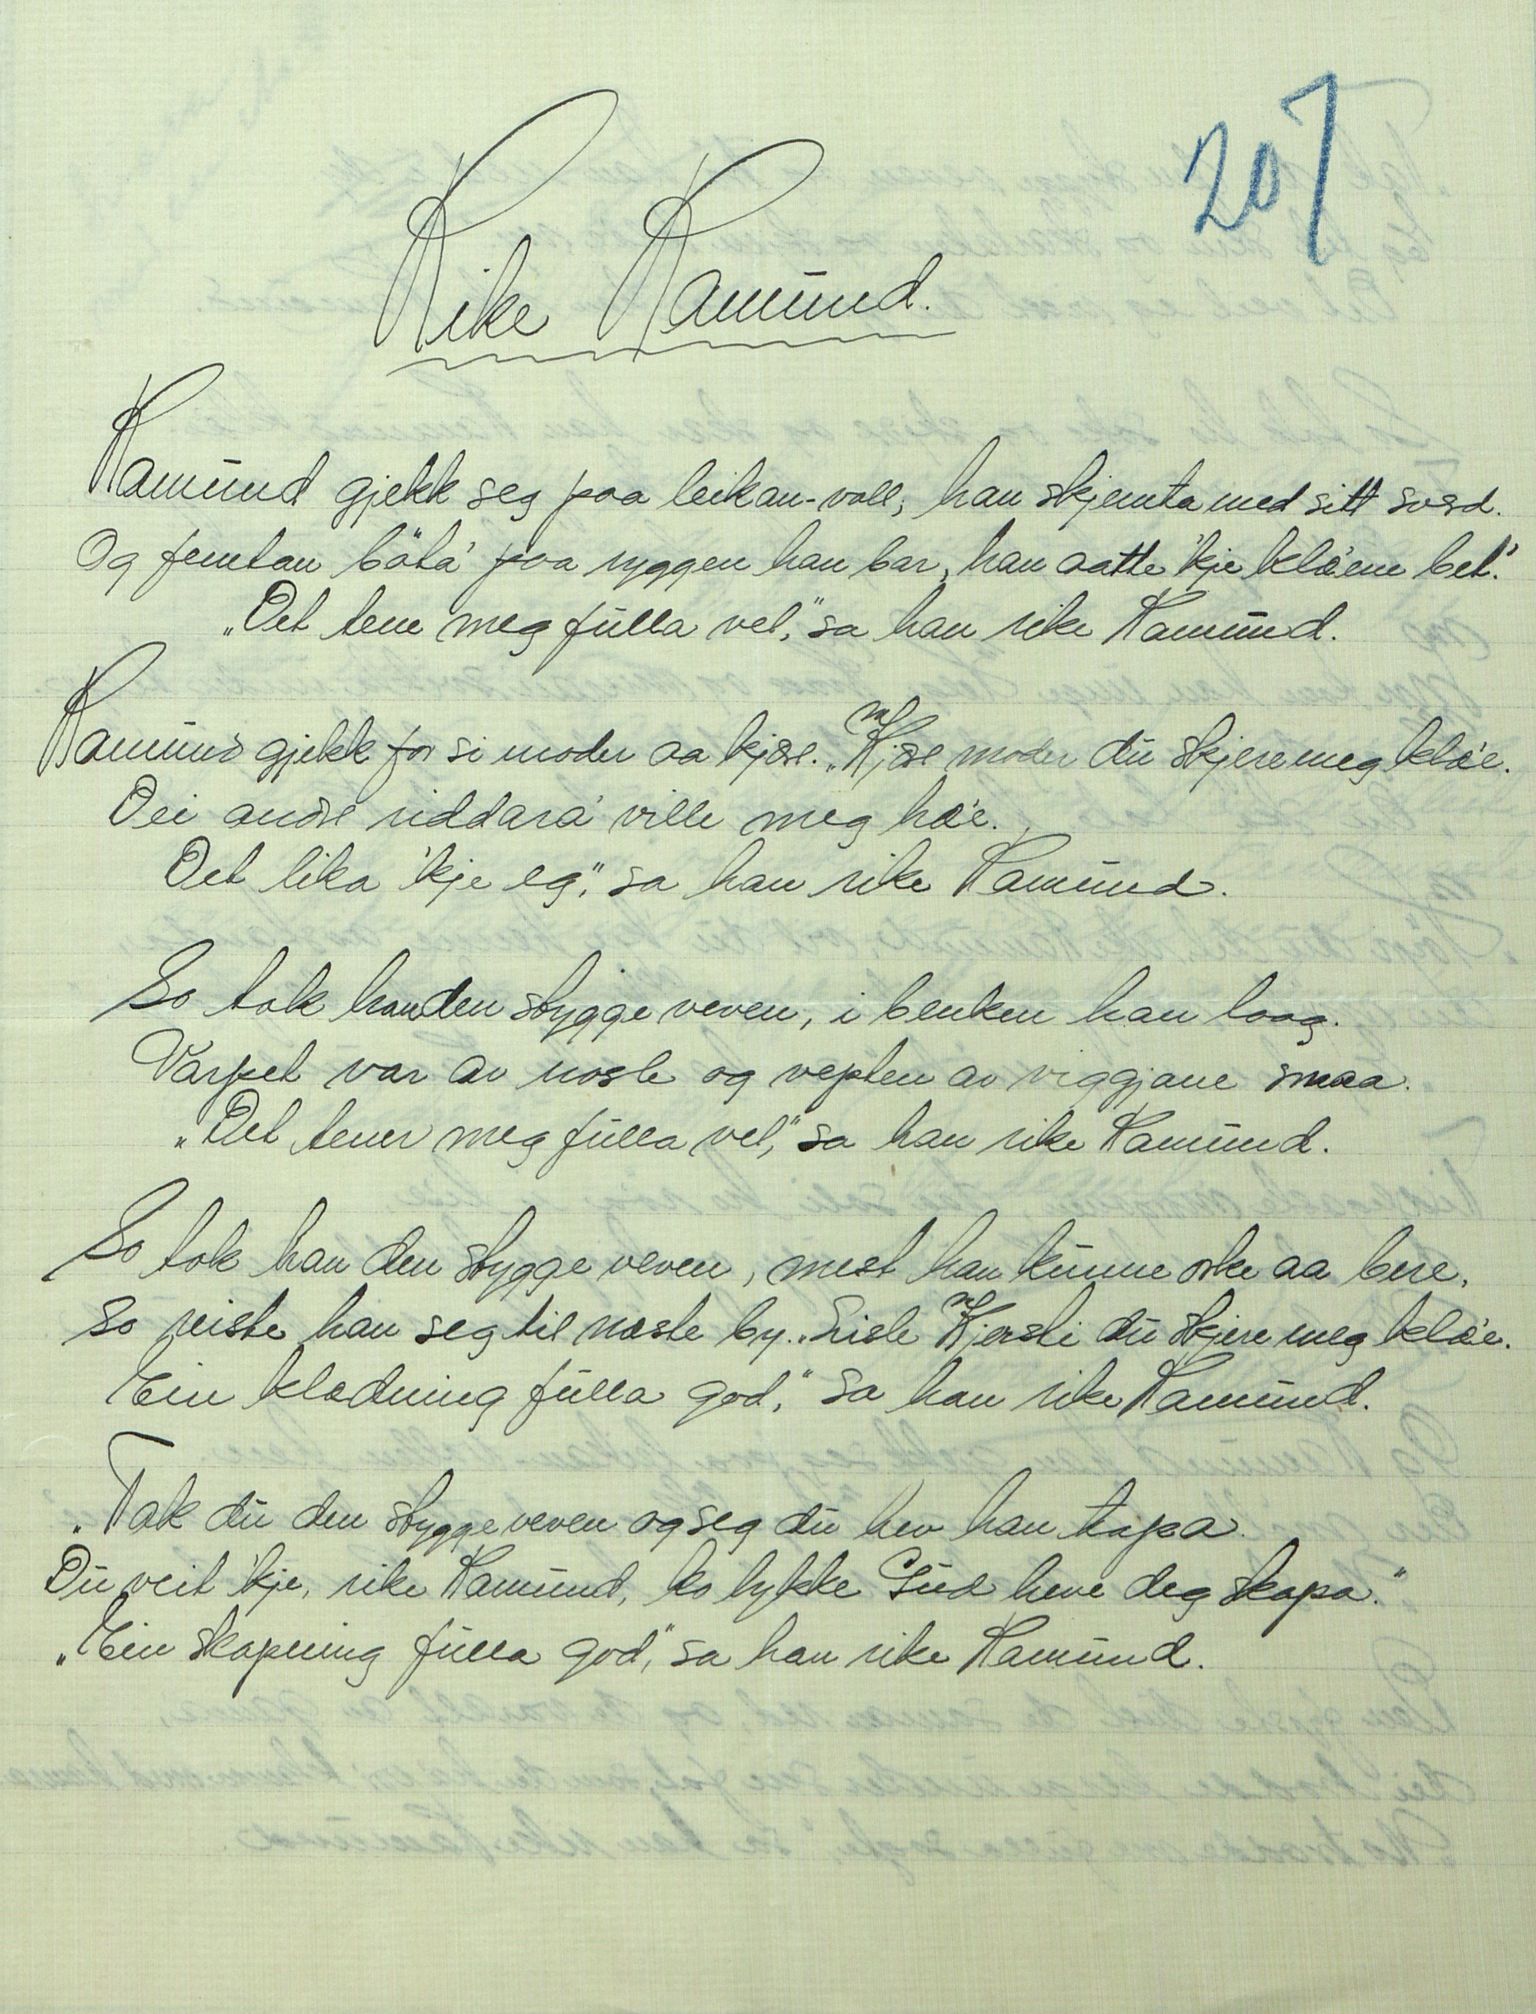 207
Rike Ramund.
Ramund gjekk seg paa leikan-voll, han skjemta med sitt sværd.
Og femtan böta' paa ryggen han bar, han aatte 'kje klæ'ene bet'.
„Det tene meg fulla vel," sa han rike Ramund.
Ramund gjekk for si moder aa kjære. „Kjære moder du skjere meg klæ'e.
Dei andre riddara' ville meg hæ'e.
Det lika 'kje eg," sa han rike Ramund.
So tok han den stygge veven, i benken han laag.
Varpet var av nosle og vepten av viggjane smaa.
„Det tener meg fulla vel," sa han rike Ramund.
So tok han den stygge veven, mest han kunne orke aa bere,
so reiste han seg til næste by. „Lisle Kjersti du skjere meg klæ'e.
Ein klædning fulla god," sa han rike Ramund.
„Tak du den stygge veven og seg du hev han tapa.
Du veit 'kje, rike Ramund, ko lykke Gud heve deg skapa."
„Ein skapning fulla god," sa han rike Ramund.